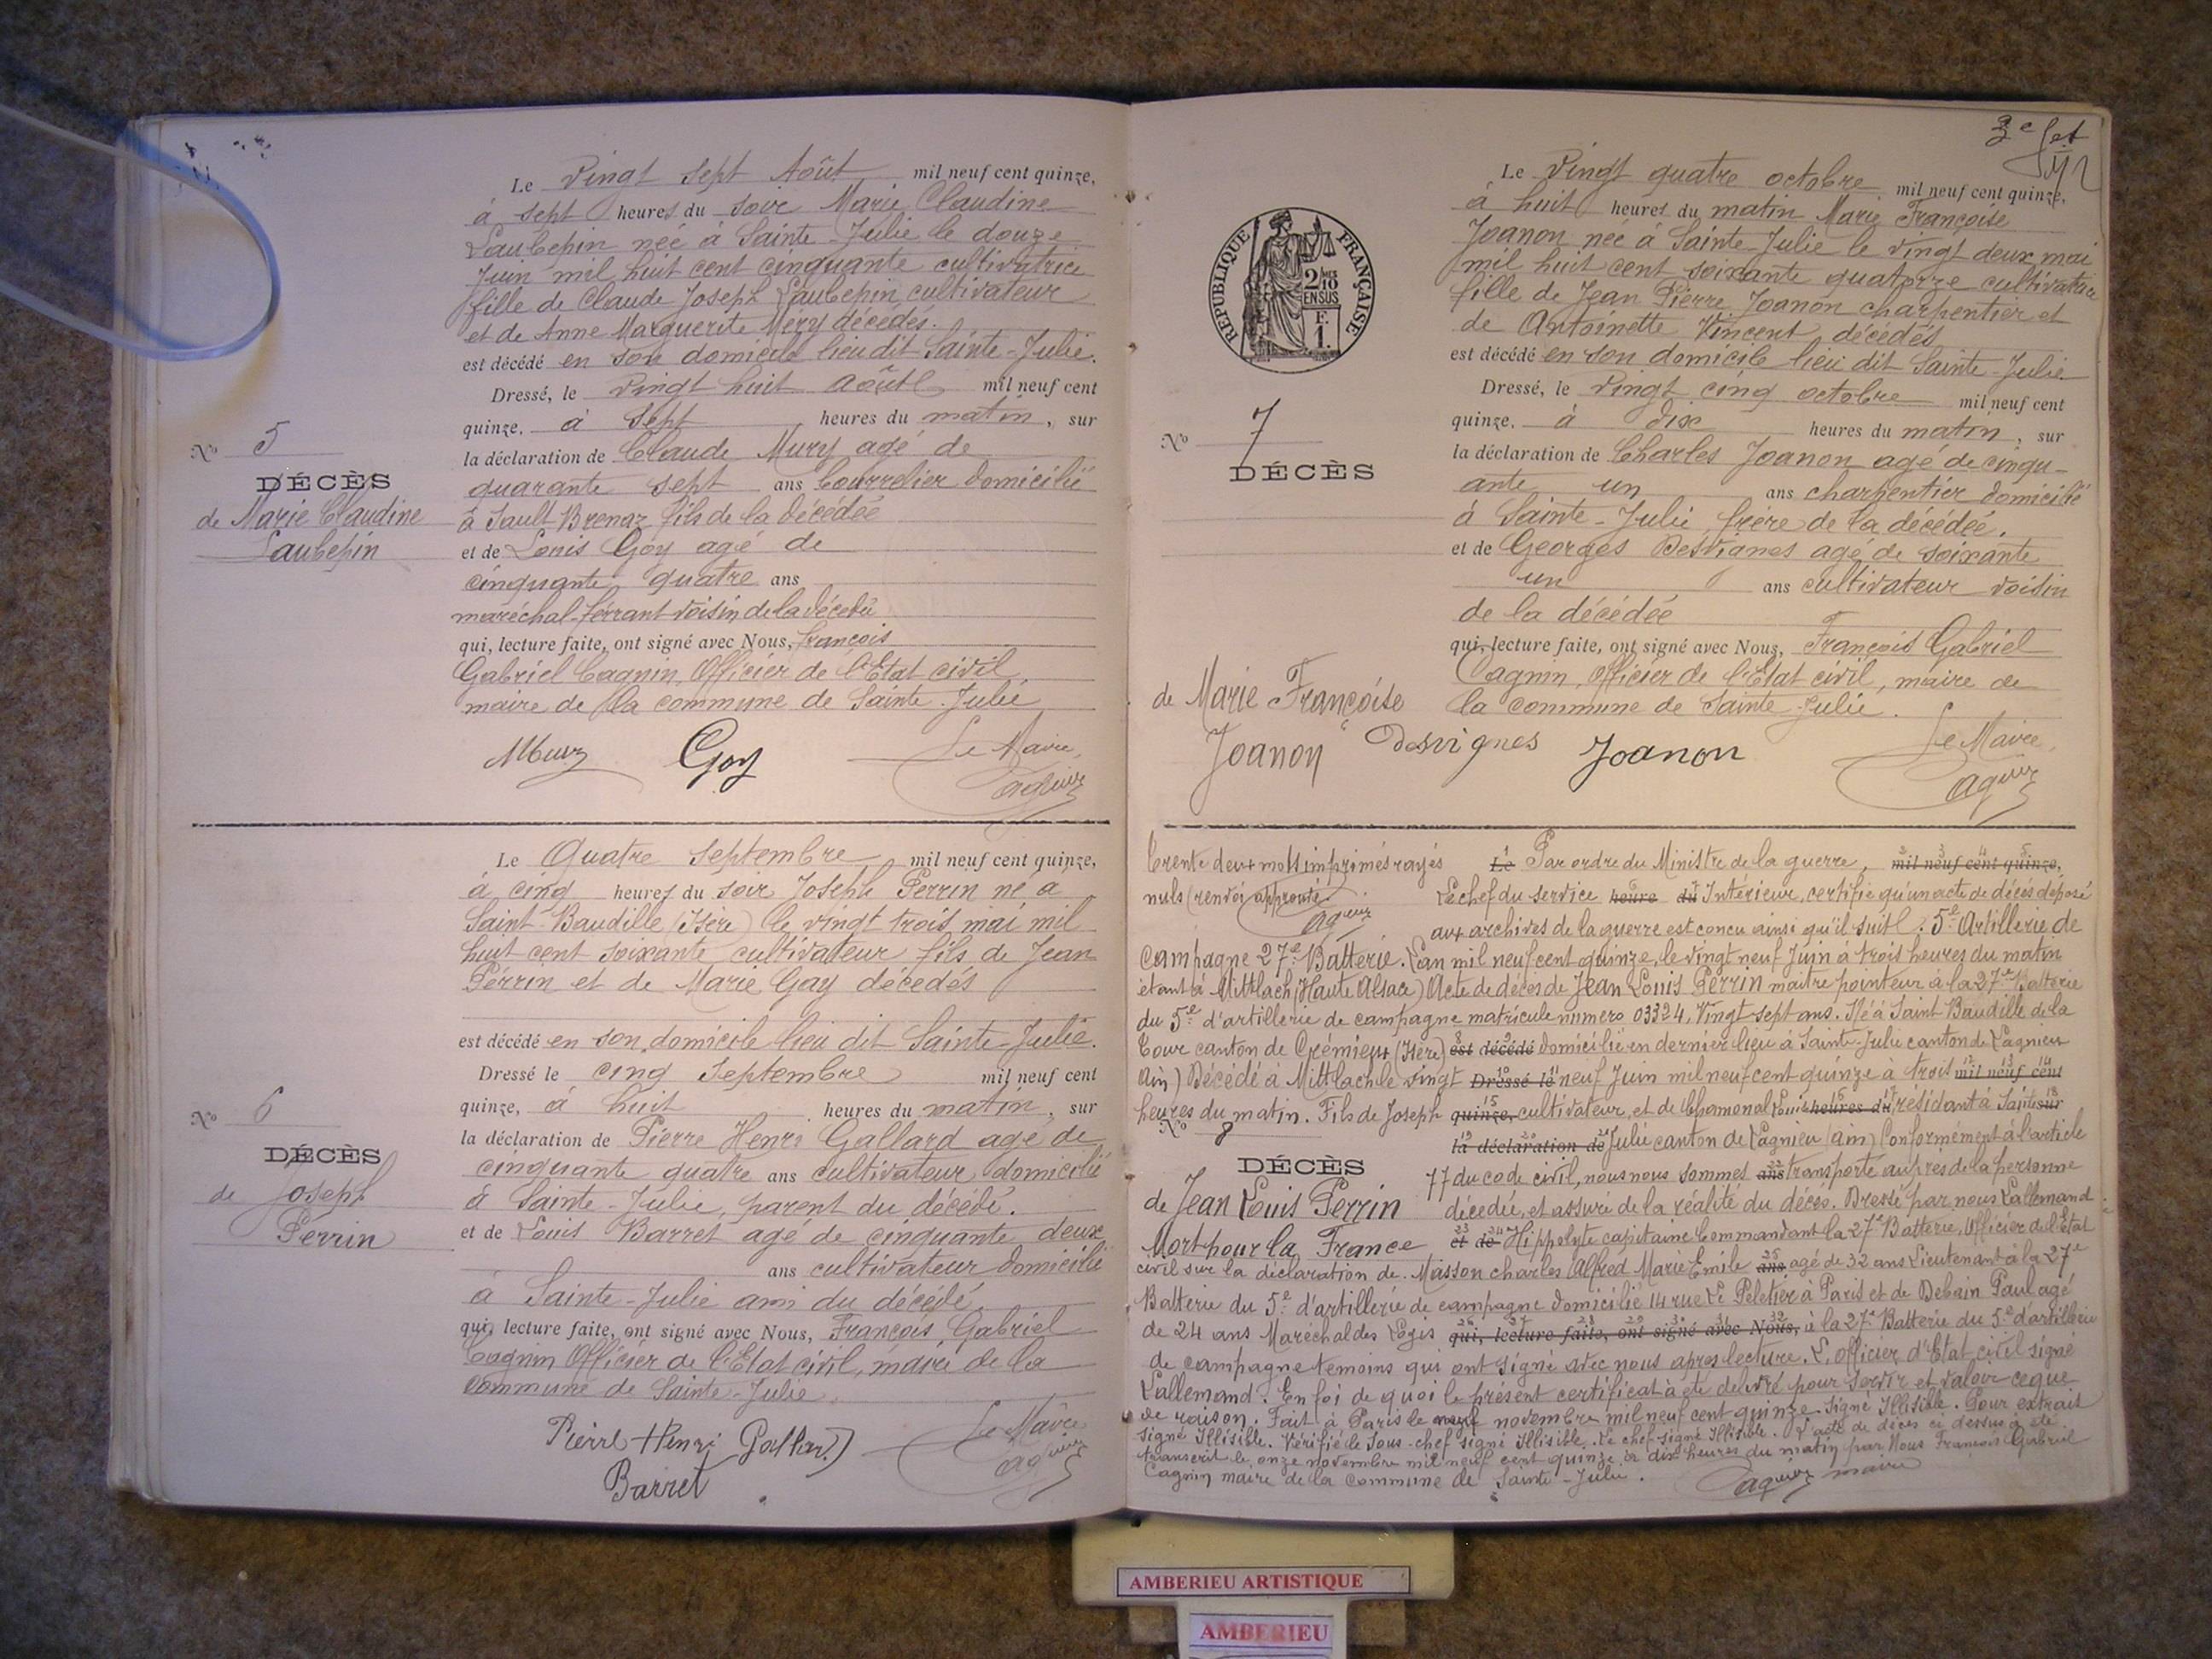 Le Vingt sept Août mil neuf cent quinze,
à sept heures du soir Marie Claudine
Laubepin née à Sainte-Julie le douze
Juin mil huit cent cinquante cultivatrice
fille de Claude Joseph Laubepin cultivateur
et de Anne Marguerite Méry décédés.
est décédé en son domicile lieu dit Sainte-Julie.
Dressé, le Vingt huit août mil neuf cent
quinze, à sept heures du matin, sur
la déclaration de Claude Mury agé de
quarante sept ans bourrelier domicilié
à Sault-Brenaz fils de la décédée
et de Louis Goy agé de
cinquante quatre ans
maréchal-ferrant voisin de la décédée
qui, lecture faite, ont signé avec Nous, François
Gabriel Cagnin, Officier de l'Etat civil
maire de la commune de Sainte-Julie
No 5
DÉCÈS
de Marie Claudine
Laubepin
Mury Goy Le Maire,
Cagnin
Le Quatre Septembre mil neuf cent quinze,
à cinq heures du soir Joseph Perrin né à
Saint-Baudille (Isère) le vingt trois mai mil
huit cent soixante cultivateur fils de Jean
Perrin et de Marie Gay décédés
est décédé en son domicile lieu dit Sainte-Julie.
Dressé le cinq Septembre mil neuf cent
quinze, à huit heures du matin, sur
la déclaration de Pierre Henri Gallard agé de
cinquante quatre ans cultivateur domicilié
à Sainte-Julie, parent du décédé.
et de Louis Barret agé de cinquante deux
ans cultivateur domicilié
à Sainte-Julie ami du décédé
qui, lecture faite, ont signé avec Nous, François Gabriel
Cagnin Officier de l'Etat civil, maire de la
commune de Sainte-Julie.
No 6
DÉCÈS
de Joseph
Perrin
Pierre Henri Gallard Le Maire
Barret Cagnin
3e
Le Vingt quatre octobre mil neuf cent quinze,
à huit heures du matin Marie Françoise
Joanon née à Sainte-Julie le vingt deux mai
mil huit cent soixante quatorze cultivatrice
fille de Jean Pierre Joanon charpentier et
de Antoinette Vincent décédés
est décédé en son domicile lieu dit Sainte-Julie
Dressé, le Vingt cinq octobre mil neuf cent
quinze, à dix heures du matin, sur
la déclaration de Charles Joanon agé de cinqu-
ante un ans charpentier domicilié
à Sainte-Julie, frère de la décédée.
et de Georges Desvignes agé de soixante
un ans cultivateur voisin
de la décédée
qui, lecture faite, ont signé avec Nous, François Gabriel
Cagnin, Officier de l'Etat civil, maire de
la commune de Sainte-Julie.
RÉPUBLIQUE FRANÇAISE
2/10
EN SUS
F.
1.
No 7
DÉCÈS
de Marie Françoise
Joanon
Desvignes Joanon Le Maire,
Cagnin
Trente deux mots imprimés rayés
nuls (renvoi approuvé)
Cagnin
Le Par ordre du Ministre de la guerre, mil neuf cent quinze,
Le chef du service heure du Intérieur, certifie qu'un acte de décès déposé
aux archives de la guerre est concu ainsi qu'il suit. 5e Artillerie de
Campagne 27e Batterie. L'an mil neuf cent quinze, le vingt neuf Juin à trois heures du matin
étant à Mittlach (Haute Alsace) Acte de décès de Jean Louis Perrin maitre pointeur à la 27e Batterie
du 5e d'artillerie de campagne matricule numero 03324, Vingt sept ans. Né à Saint Baudille de la
Tour canton de Crémieux (Isère) est décédé domicilié en dernier lieu à Sainte-Julie canton de Lagnieu
Ain) Décédé à Mittlach le vingt Dressé le neuf Juin mil neuf cent quinze à trois mil neuf cent
heures du matin. Fils de Joseph quinze, cultivateur, et de Chamonal Louise heures du, résidant à Sainte sur
la déclaration de Julie canton de Lagnieu (ain) Conformément à l'article
77 du code civil, nous nous sommes ans transporté auprès de la personne
décédée, et assuré de la réalité du décès. Dressé par nous Lallemand
et de Hippolyte capitaine Commandant la 27e Batterie, Officier de l'Etat
No 8
DÉCÈS
de Jean Louis Perrin
Mort pour la France
civil sur la déclaration de Masson Charles Alfred Marie Emile ans agé de 32 ans Lieutenant à la 27e
Batterie du 5e d'artillerie de campagne domicilié 14 rue Le Peletier à Paris et de Debain Paul agé
de 24 ans Maréchal des Logis qui, lecture faite, ont signé avec Nous, à la 27e Batterie du 5e d'artillerie
de campagne temoins qui ont signé avec nous apres lecture. L'officier d'Etat civil signé
Lallemand. En foi de quoi le présent certificat à été delivré pour servir et valoir ce que
de raison. Fait à Paris le neuf novembre mil neuf cent quinze. Signé Illisible. Pour extrait
signé Illisible. Vérifié le Sous-chef signé Illisible. Le chef signé Illisible. L'acte de décès ci dessus a été
transcrit le onze novembre mil neuf cent quinze à dix heures du matin par Nous François Gabriel
Cagnin maire de la commune de Sainte-Julie.
Cagnin maire
AMBERIEU ARTISTIQUE
AMBERIEU